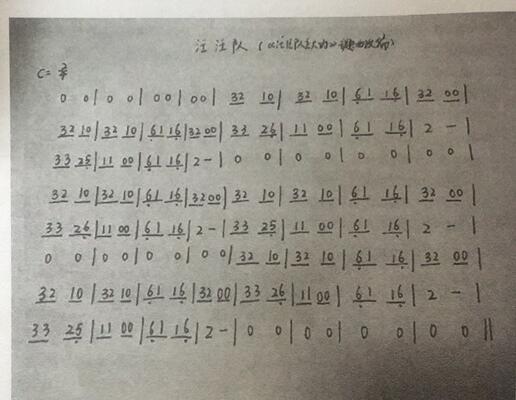 汪汪队
C= 2/4
0 0 | 0 0 | 0 0 | 0 0 | 32 10 | 32 10 | 61 16 | 32 00 |
32 10 | 32 10 | 61 16 | 32 00 | 33 26 | 11 00 | 61 16 | 2 - |
33 25 | 11 00 | 61 16 | 2 - | 0 0 | 0 0 | 0 0 | 0 0 |
32 10 | 32 10 | 61 16 | 32 00 | 32 10 | 32 10 | 61 16 | 32 00 |
33 26 | 11 00 | 61 16 | 2 - | 33 25 | 11 00 | 61 16 | 2 - |
0 0 | 0 0 | 0 0 | 0 0 | 32 10 | 32 10 | 61 16 | 32 00 |
32 10 | 32 10 | 61 16 | 32 00 | 33 26 | 11 00 | 61 16 | 2 - |
33 25 | 11 00 | 61 16 | 2 - | 0 0 | 0 0 | 0 0 | 0 0 ||